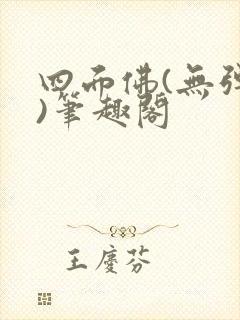 四面佛(無彈
)筆趣閣
王慶芬